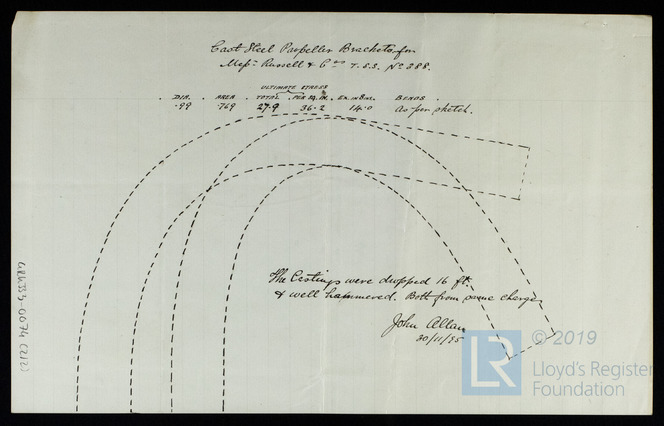 Cast Steel Propeller Brackets for
Messrs Russell & Cos T.S.S. No 388.
ULTIMATE STRESS
DIA. AREA TOTAL PER SQ. IN. EX. IN 8 INS. BENDS
.99 .769 27.9 36.2 14.0 As per sketch.
The Castings were dropped 16 ft.
& well hammered. Both from same charge
John Allan
30/11/95
© 2019
LR
Lloyd's Register
Foundation